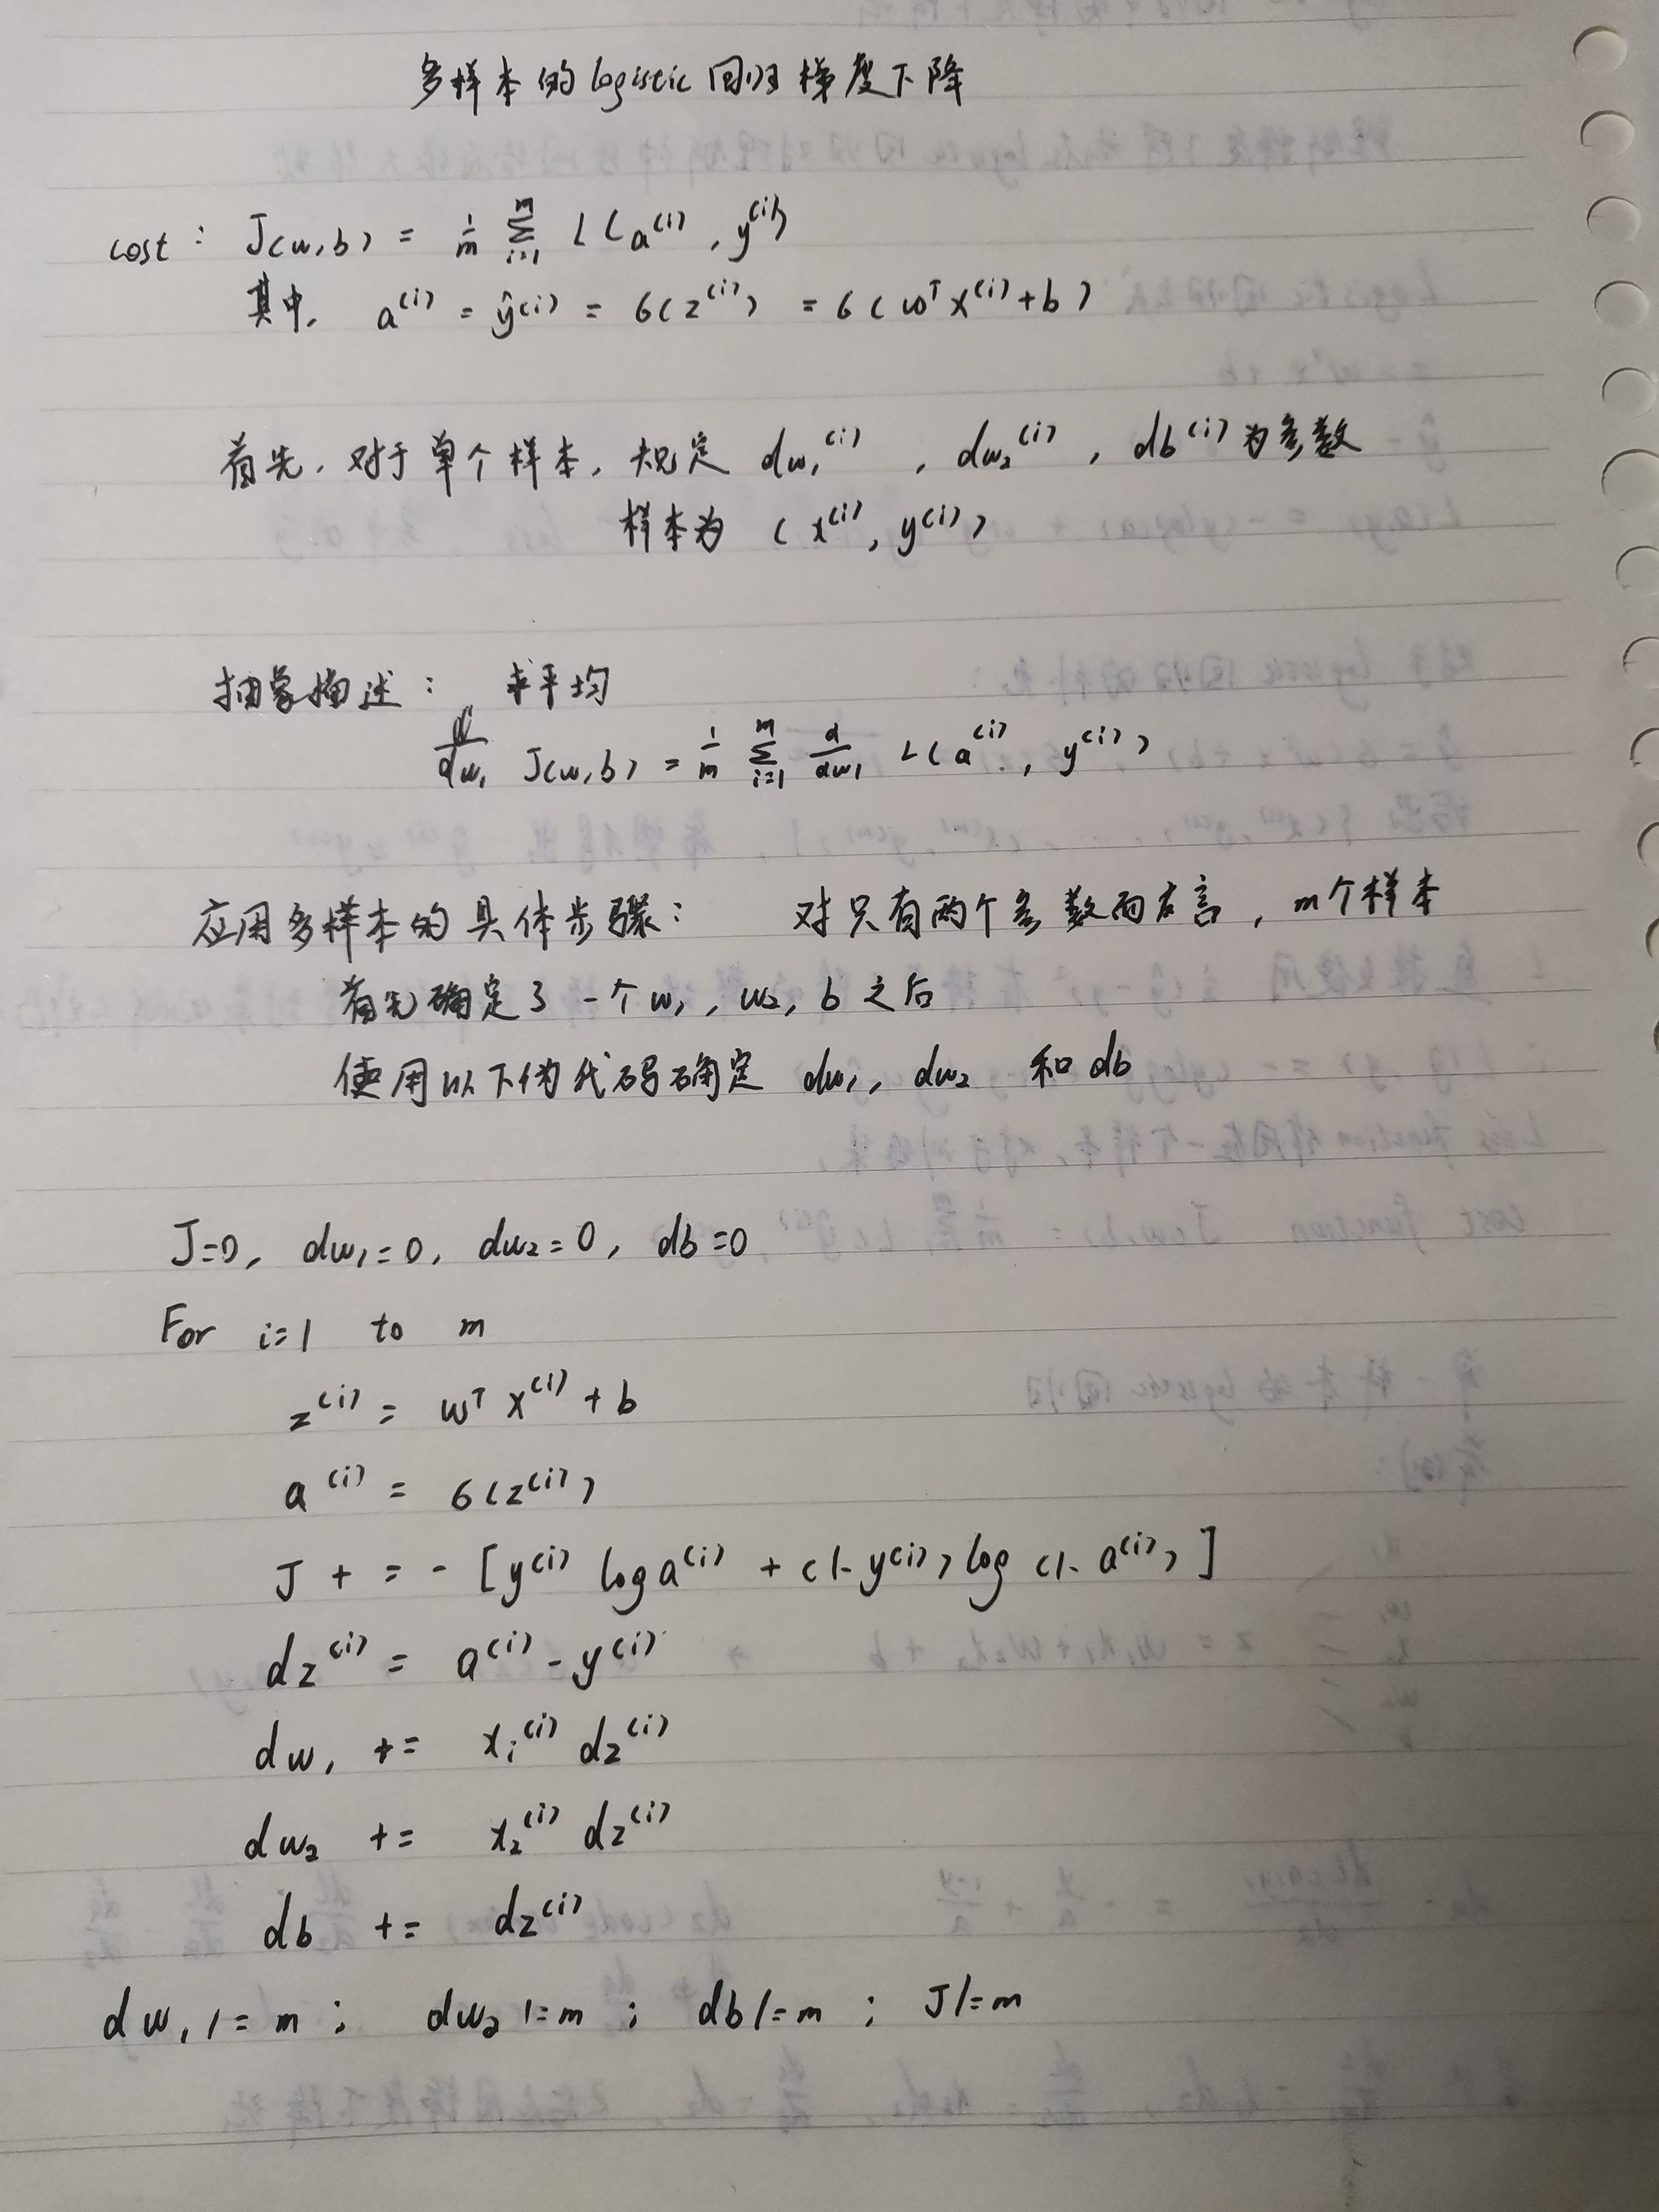 多样本的logistic回归梯度下降
cost: J(w,b) = 1/m Σ_{i=1}^{m} L(a^(i), y^(i))
其中, a^(i) = ŷ^(i) = σ(z^(i)) = σ(w^T x^(i)+b)
首先,对于单个样本,规定 dw₁^(i), dw₂^(i), db^(i)为参数
样本为 (x^(i), y^(i))
抽象描述: 求平均
d/dw₁ J(w,b) = 1/m Σ_{i=1}^{m} d/dw₁ L(a^(i), y^(i))
应用多样本的具体步骤: 对只有两个参数而言, m个样本
首先确定了一个w₁, w₂, b之后
使用以下伪代码确定 dw₁, dw₂ 和 db
J=0, dw₁=0, dw₂=0, db=0
For i=1 to m
z^(i) = w^T x^(i) + b
a^(i) = σ(z^(i))
J += -[y^(i) log a^(i) + (1-y^(i)) log (1-a^(i))]
dz^(i) = a^(i) - y^(i)
dw₁ += x₁^(i) dz^(i)
dw₂ += x₂^(i) dz^(i)
db += dz^(i)
dw₁ /= m; dw₂ /= m; db /= m; J /= m